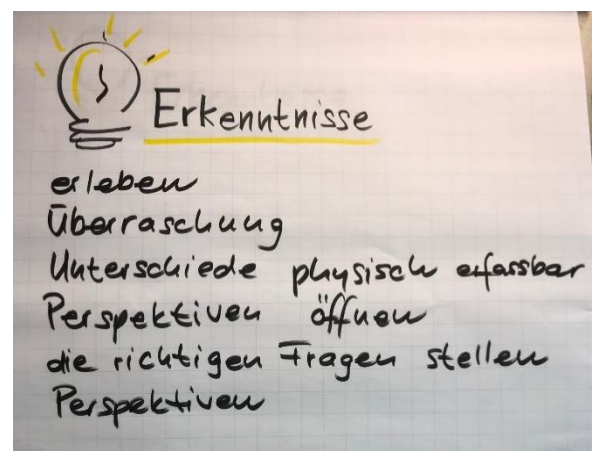 Erkenntnisse
erleben
Überraschung
Unterschiede physisch erfassbar
Perspektiven öffnen
die richtigen Fragen stellen
Perspektiven